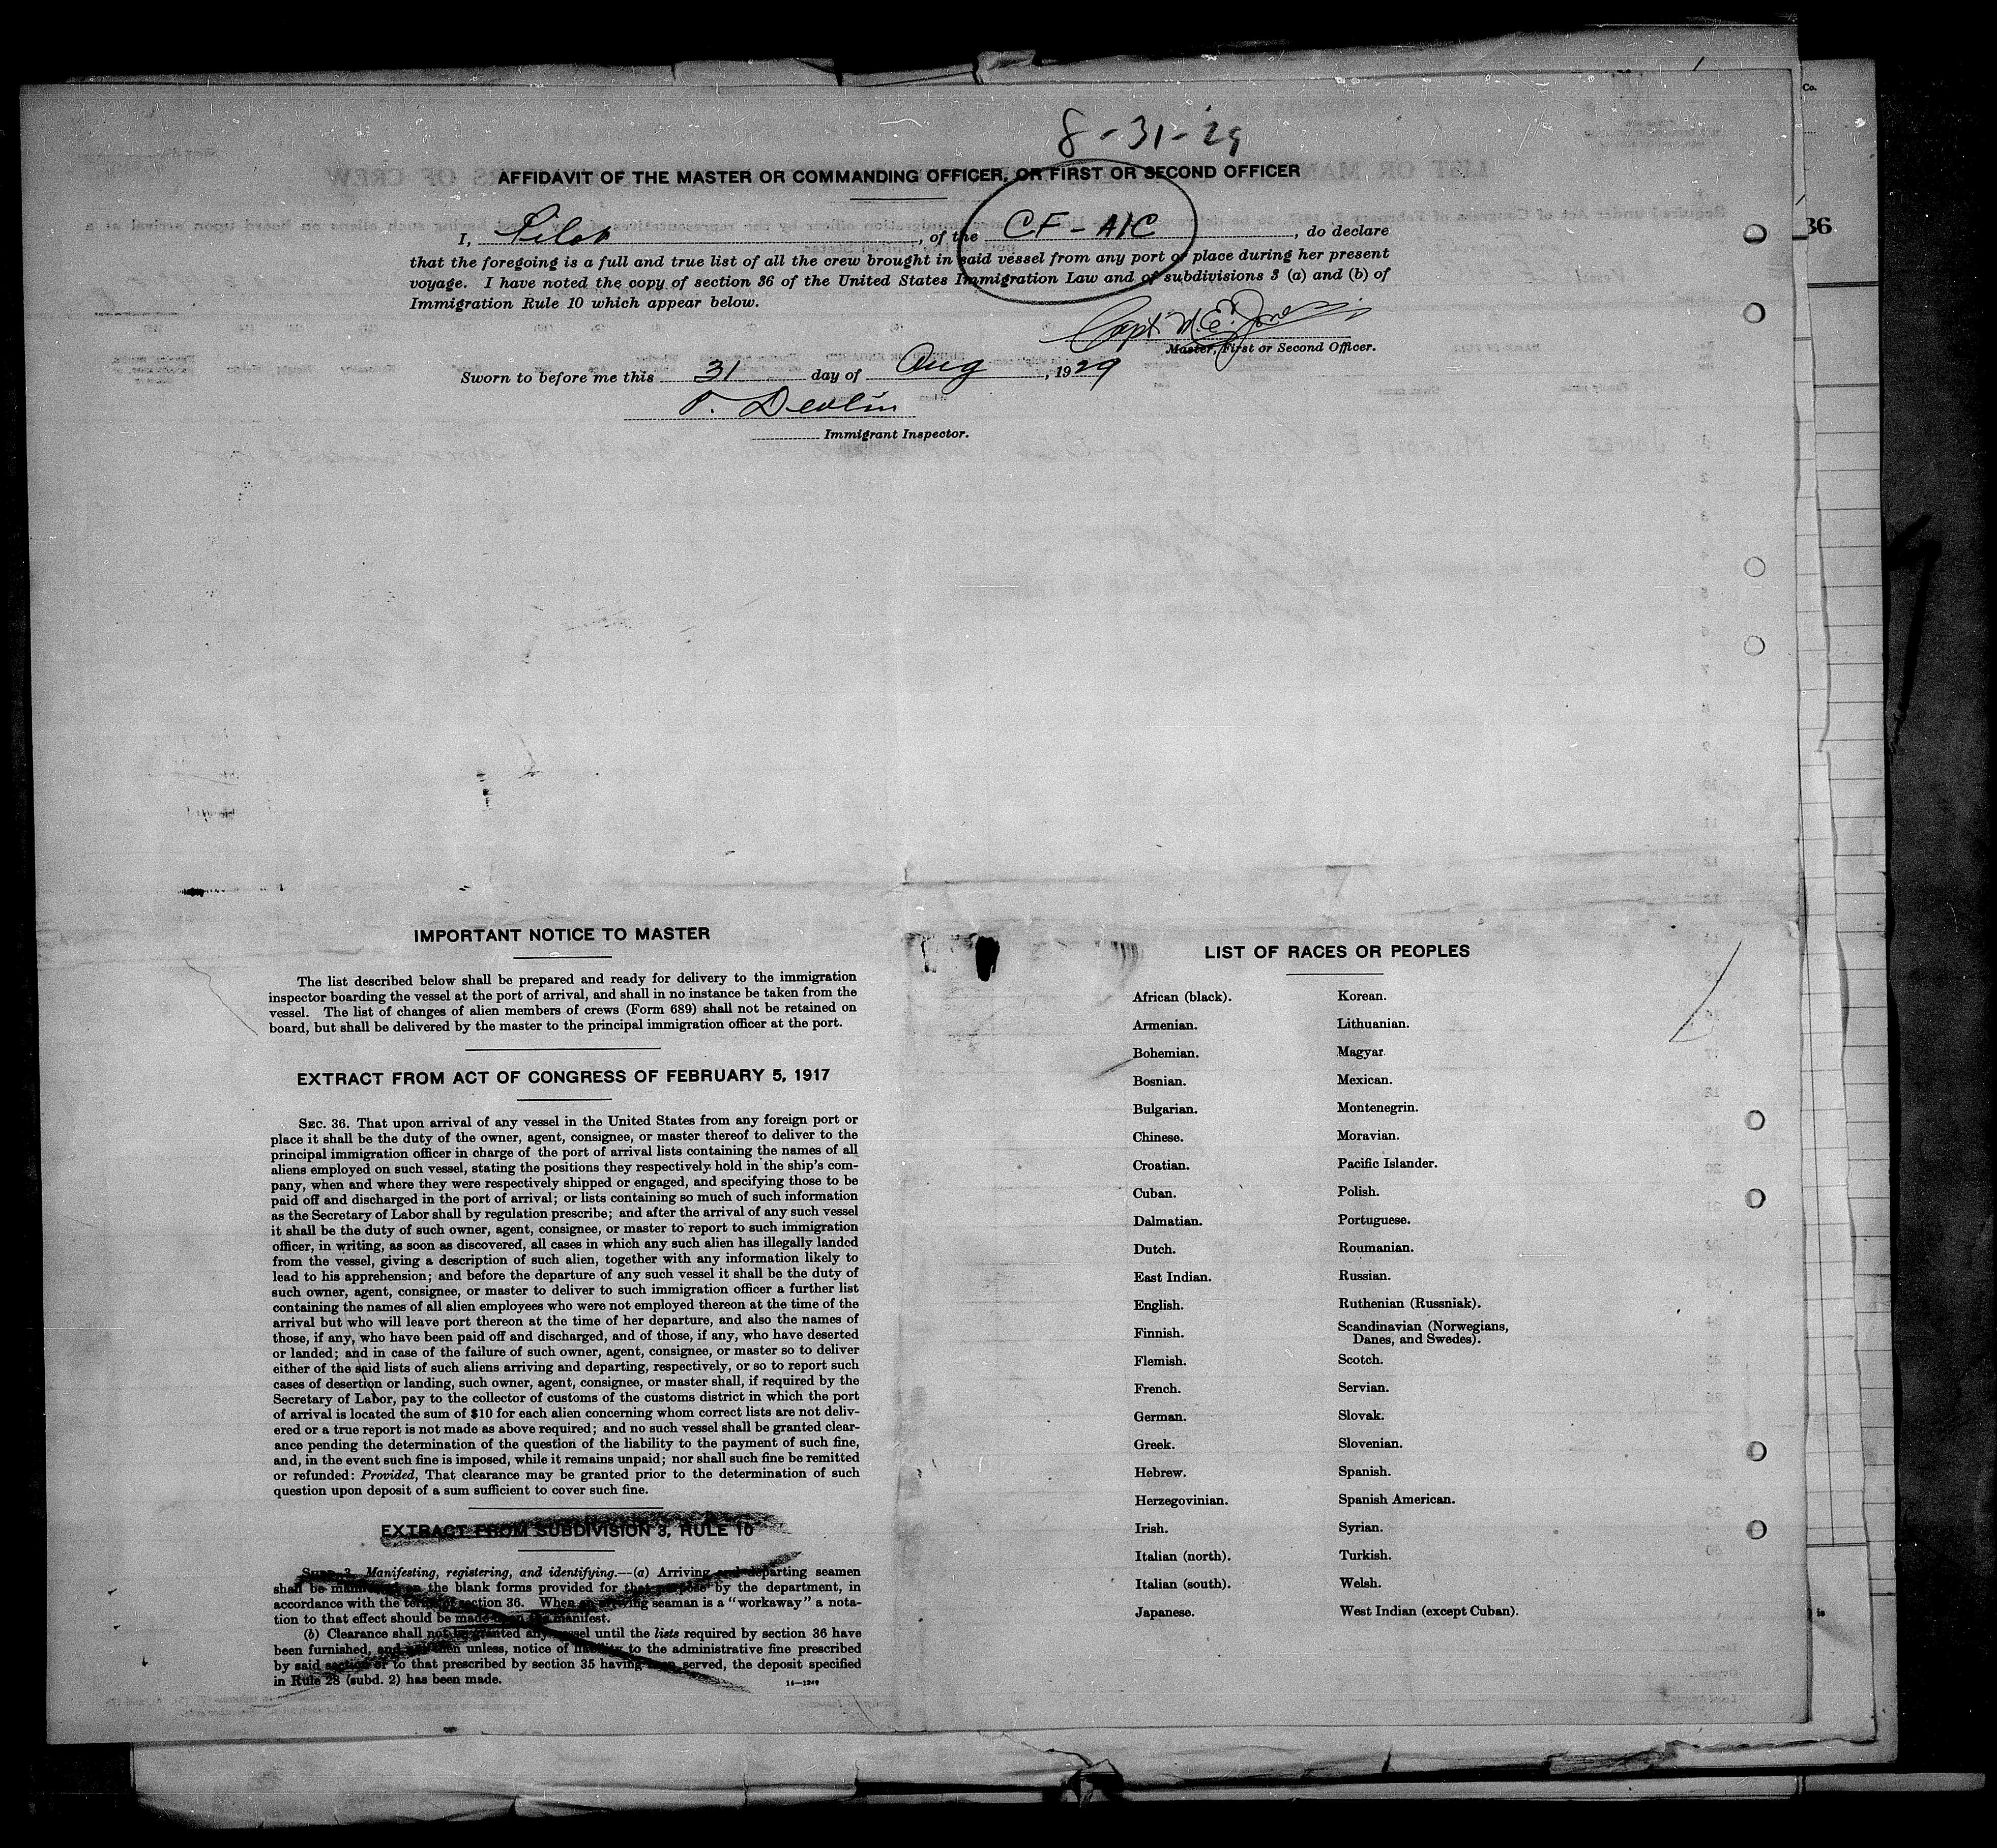 8-31-29
AFFIDAVIT OF THE MASTER OR COMMANDING OFFICER, OR FIRST OR SECOND OFFICER
I, Pilot, of the CF-AIC, do declare
that the foregoing is a full and true list of all the crew brought in said vessel from any port or place during her present
voyage. I have noted the copy of section 36 of the United States Immigration Law and of subdivisions 3 (a) and (b) of
Immigration Rule 10 which appear below.
Capt M.E. Jones
Master, First or Second Officer.
Sworn to before me this 31 day of Aug, 1929
Devlin
Immigrant Inspector.
36
Co.
IMPORTANT NOTICE TO MASTER
The list described below shall be prepared and ready for delivery to the immigration
inspector boarding the vessel at the port of arrival, and shall in no instance be taken from the
vessel. The list of changes of alien members of crews (Form 689) shall not be retained on
board, but shall be delivered by the master to the principal immigration officer at the port.
EXTRACT FROM ACT OF CONGRESS OF FEBRUARY 5, 1917
SEC. 36. That upon arrival of any vessel in the United States from any foreign port or
place it shall be the duty of the owner, agent, consignee, or master thereof to deliver to the
principal immigration officer in charge of the port of arrival lists containing the names of all
aliens employed on such vessel, stating the positions they respectively hold in the ship's com-
pany, when and where they were respectively shipped or engaged, and specifying those to be
paid off and discharged in the port of arrival; or lists containing so much of such information
as the Secretary of Labor shall by regulation prescribe; and after the arrival of any such vessel
it shall be the duty of such owner, agent, consignee, or master to report to such immigration
officer, in writing, as soon as discovered, all cases in which any such alien has illegally landed
from the vessel, giving a description of such alien, together with any information likely to
lead to his apprehension; and before the departure of any such vessel it shall be the duty of
such owner, agent, consignee, or master to deliver to such immigration officer a further list
containing the names of all alien employees who were not employed thereon at the time of the
arrival but who will leave port thereon at the time of her departure, and also the names of
those, if any, who have been paid off and discharged, and of those, if any, who have deserted
or landed; and in case of the failure of such owner, agent, consignee, or master so to deliver
either of the said lists of such aliens arriving and departing, respectively, or so to report such
cases of desertion or landing, such owner, agent, consignee, or master shall, if required by the
Secretary of Labor, pay to the collector of customs of the customs district in which the port
of arrival is located the sum of $10 for each alien concerning whom correct lists are not deliv-
ered or a true report is not made as above required; and no such vessel shall be granted clear-
ance pending the determination of the question of the liability to the payment of such fine,
and, in the event such fine is imposed, while it remains unpaid; nor shall such fine be remitted
or refunded: Provided, That clearance may be granted prior to the determination of such
question upon deposit of a sum sufficient to cover such fine.
EXTRACT FROM SUBDIVISION 3, RULE 10
SUBD. 3. Manifesting, registering, and identifying.—(a) Arriving and departing seamen
shall be manifested on the blank forms provided for that purpose by the department, in
accordance with the terms of section 36. When an arriving seaman is a "workaway" a nota-
tion to that effect should be made upon the manifest.
(b) Clearance shall not be granted any vessel until the lists required by section 36 have
been furnished, and not then unless, notice of liability to the administrative fine prescribed
by said section or to that prescribed by section 35 having been served, the deposit specified
in Rule 28 (subd. 2) has been made.
14—1249
LIST OF RACES OR PEOPLES
African (black).
Armenian.
Bohemian.
Bosnian.
Bulgarian.
Chinese.
Croatian.
Cuban.
Dalmatian.
Dutch.
East Indian.
English.
Finnish.
Flemish.
French.
German.
Greek.
Hebrew.
Herzegovinian.
Irish.
Italian (north).
Italian (south).
Japanese.
Korean.
Lithuanian.
Magyar
Mexican.
Montenegrin.
Moravian.
Pacific Islander.
Polish.
Portuguese.
Roumanian.
Russian.
Ruthenian (Russniak).
Scandinavian (Norwegians,
Danes, and Swedes).
Scotch.
Servian.
Slovak.
Slovenian.
Spanish.
Spanish American.
Syrian.
Turkish.
Welsh.
West Indian (except Cuban).